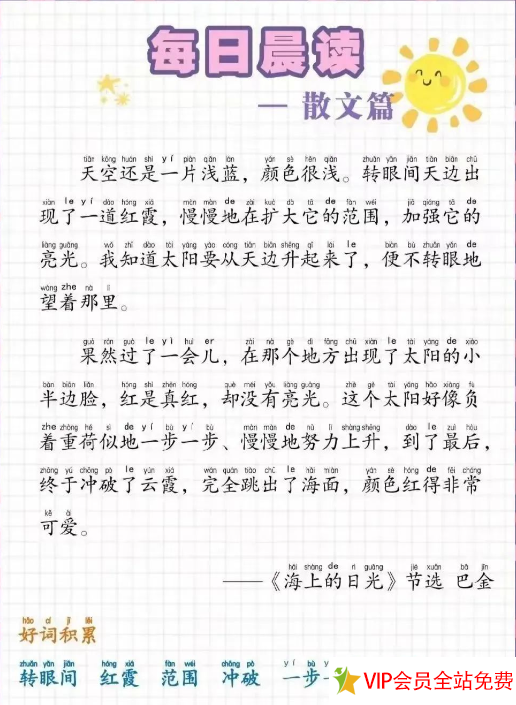 每日晨读
— 散文篇
tiān kōng huán shì yí piàn qiǎn lán yán sè hěn qiǎn zhuǎn yǎn jiān tiān biān chū
天空还是一片浅蓝，颜色很浅。转眼间天边出
xiàn le yí dào hóng xiá màn màn de zài kuò dà tā de fàn wéi jiā qiáng tā de
现了一道红霞，慢慢地在扩大它的范围，加强它的
liàng guāng wǒ zhī dào tài yáng yào cóng tiān biān shēng qǐ lái le biàn bù zhuǎn yǎn de
亮光。我知道太阳要从天边升起来了，便不转眼地
wàng zhe nà lǐ
望着那里。
guǒ rán guò le yì huì er zài nà gè dì fāng chū xiàn le tài yáng de xiǎo
果然过了一会儿，在那个地方出现了太阳的小
bàn biān liǎn hóng shì zhēn hóng què méi yǒu liàng guāng zhè gè tài yáng hǎo xiàng fù
半边脸，红是真红，却没有亮光。这个太阳好像负
zhe zhòng hè shì de yí bù yí bù màn màn de nǔ lì shàng shēng dào le zuì hòu
着重荷似地一步一步、慢慢地努力上升，到了最后，
zhōng yú chōng pò le yún xiá wán quán tiào chū le hǎi miàn yán sè hóng de fēi cháng
终于冲破了云霞，完全跳出了海面，颜色红得非常
kě ài
可爱。
hǎi shàng de rì guāng jié xuǎn bā jīn
——《海上的日光》节选 巴金
hǎo cí jī lěi
好词积累
zhuǎn yǎn jiān hóng xiá fàn wéi chōng pò yí bù y
转眼间 红霞 范围 冲破 一步一
VIP会员全站免费